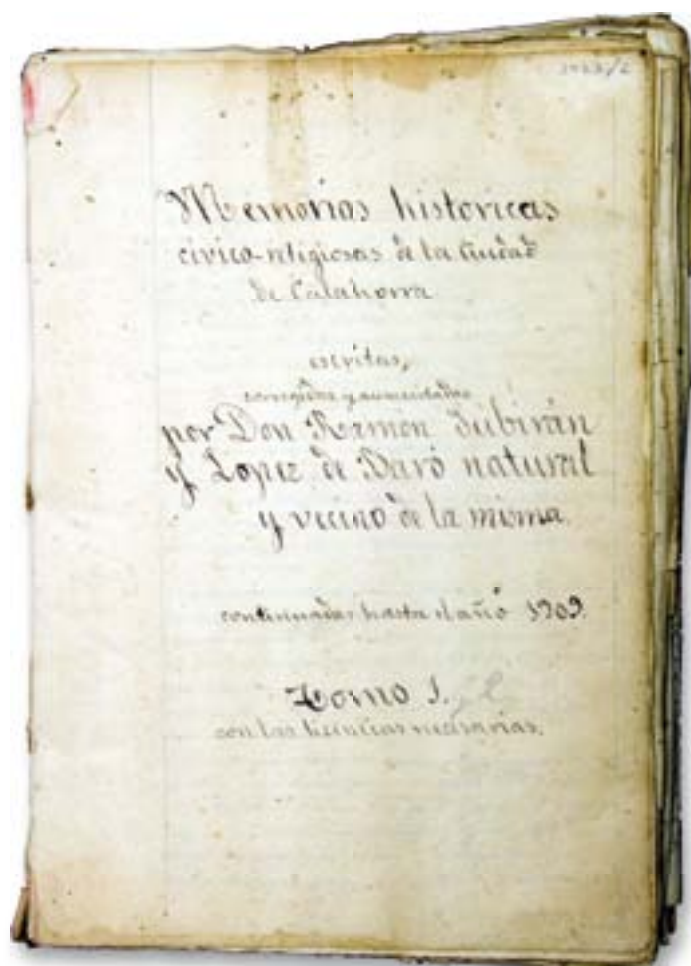 Memorias historicas
civico-religiosas de la Ciudad
de Calahorra
escritas,
corregidas y aumentadas
por Don Ramón Subirán
y Lopez de Baró natural
y vecino de la misma.
continuadas hasta el año 1909.
Tomo 1.
con las licencias necesarias.